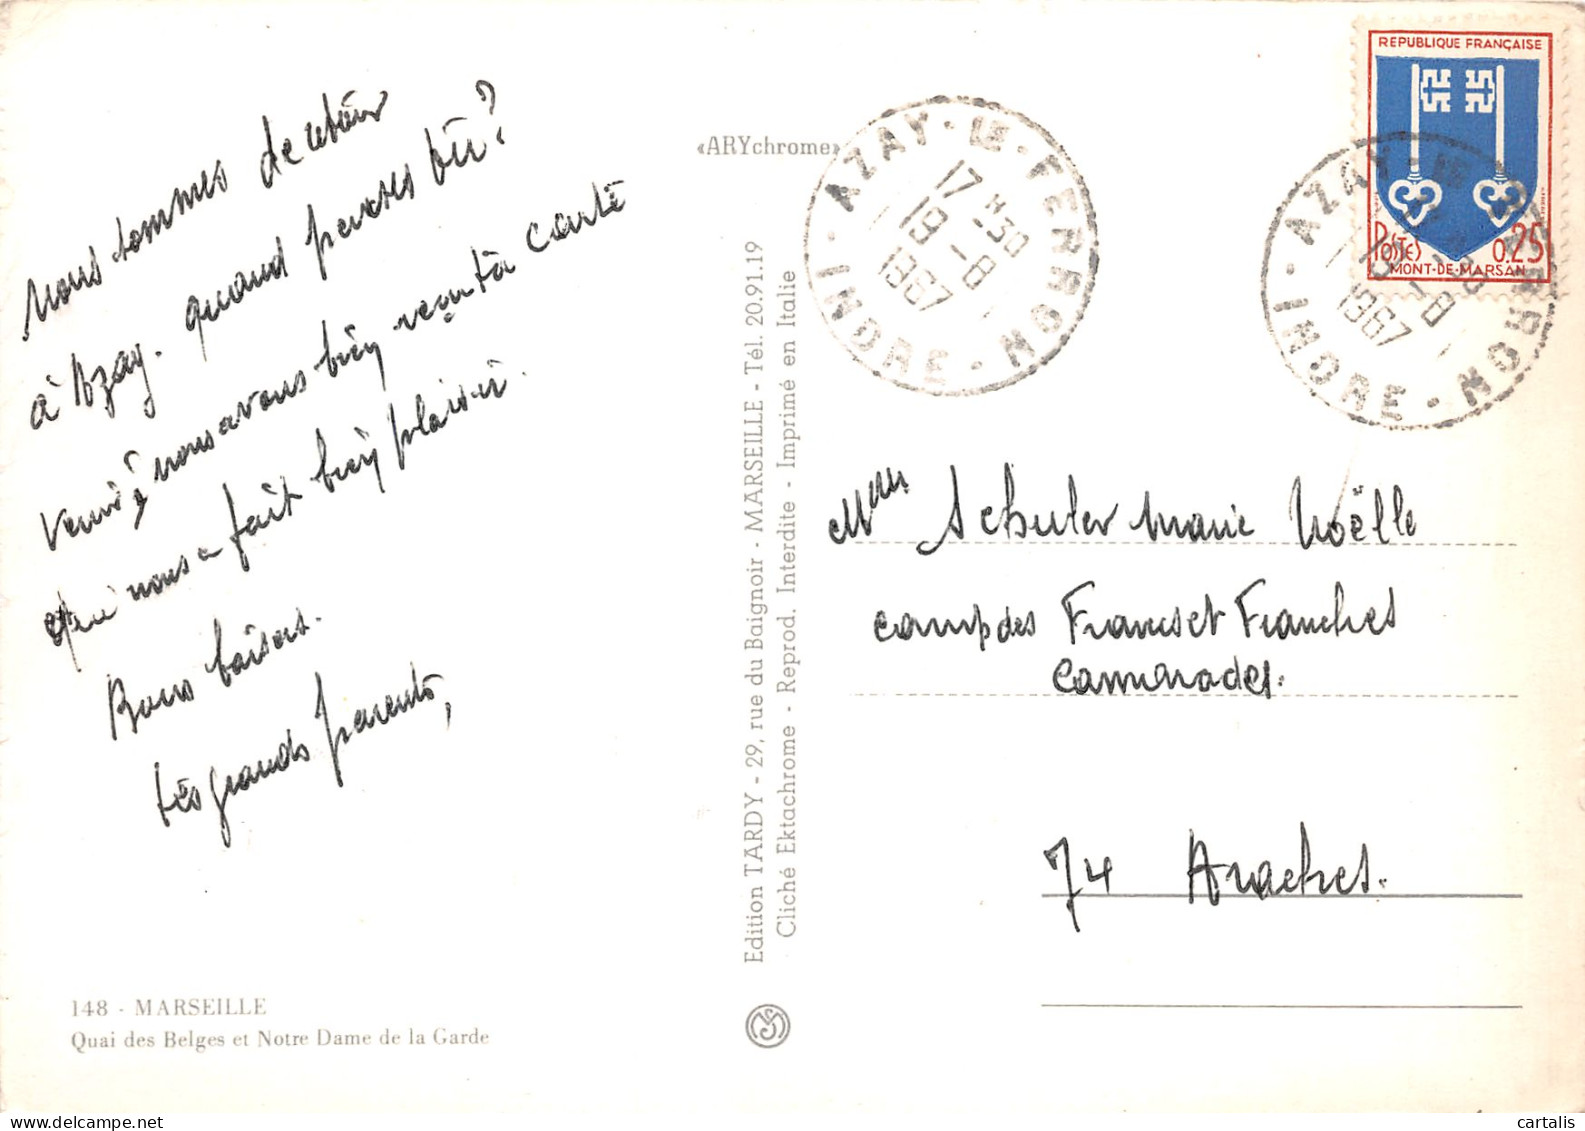 Nous sommes de retour
à Azay. quand penses tu
venir? nous avons bien reçu ta carte
qui nous a fait bien plaisir.
Bons baisers.
tes grands parents,
148 - MARSEILLE
Quai des Belges et Notre Dame de la Garde
«ARYchrome»
Edition TARDY - 29, rue du Baignoir - MARSEILLE - Tél. 20.91.19
Cliché Ektachrome - Reprod. Interdite - Imprimé en Italie
AZAY-LE-FERRON
17H30
19-8
1967
INDRE
REPUBLIQUE FRANÇAISE
POSTES 0,25
MONT-DE-MARSAN
AZAY-LE-FERRON
17H30
19-8
1967
INDRE
Schuler Marie Noëlle
camp des Francs et Franches
Camarades.
74 Araches.
cartalis